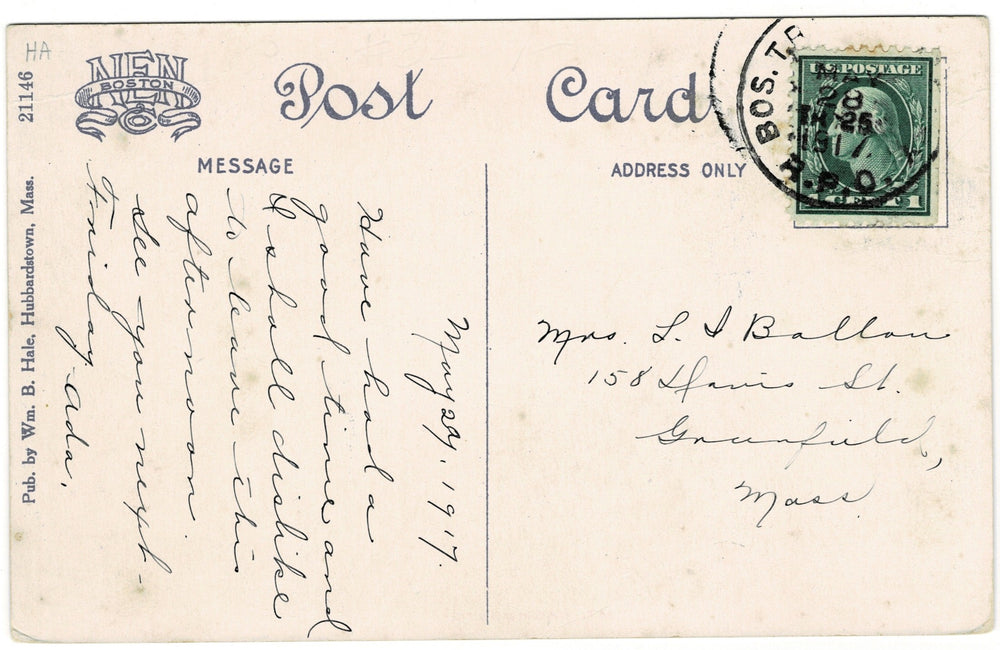 HA
21146
NEN
BOSTON
Co
Post Card
MESSAGE
ADDRESS ONLY
Pub. by Wm. B. Hale, Hubbardstown, Mass.
BOS. T
28
25
1917
R.P.O.
U.S. POSTAGE
1 CENTS 1
May 29, 1917.
Have had a
good time and
I shall dislike
to leave this
afternoon.
See you next
Friday. Ada.
Mrs. L. S Ballou
158 Davis St.
Greenfield,
Mass